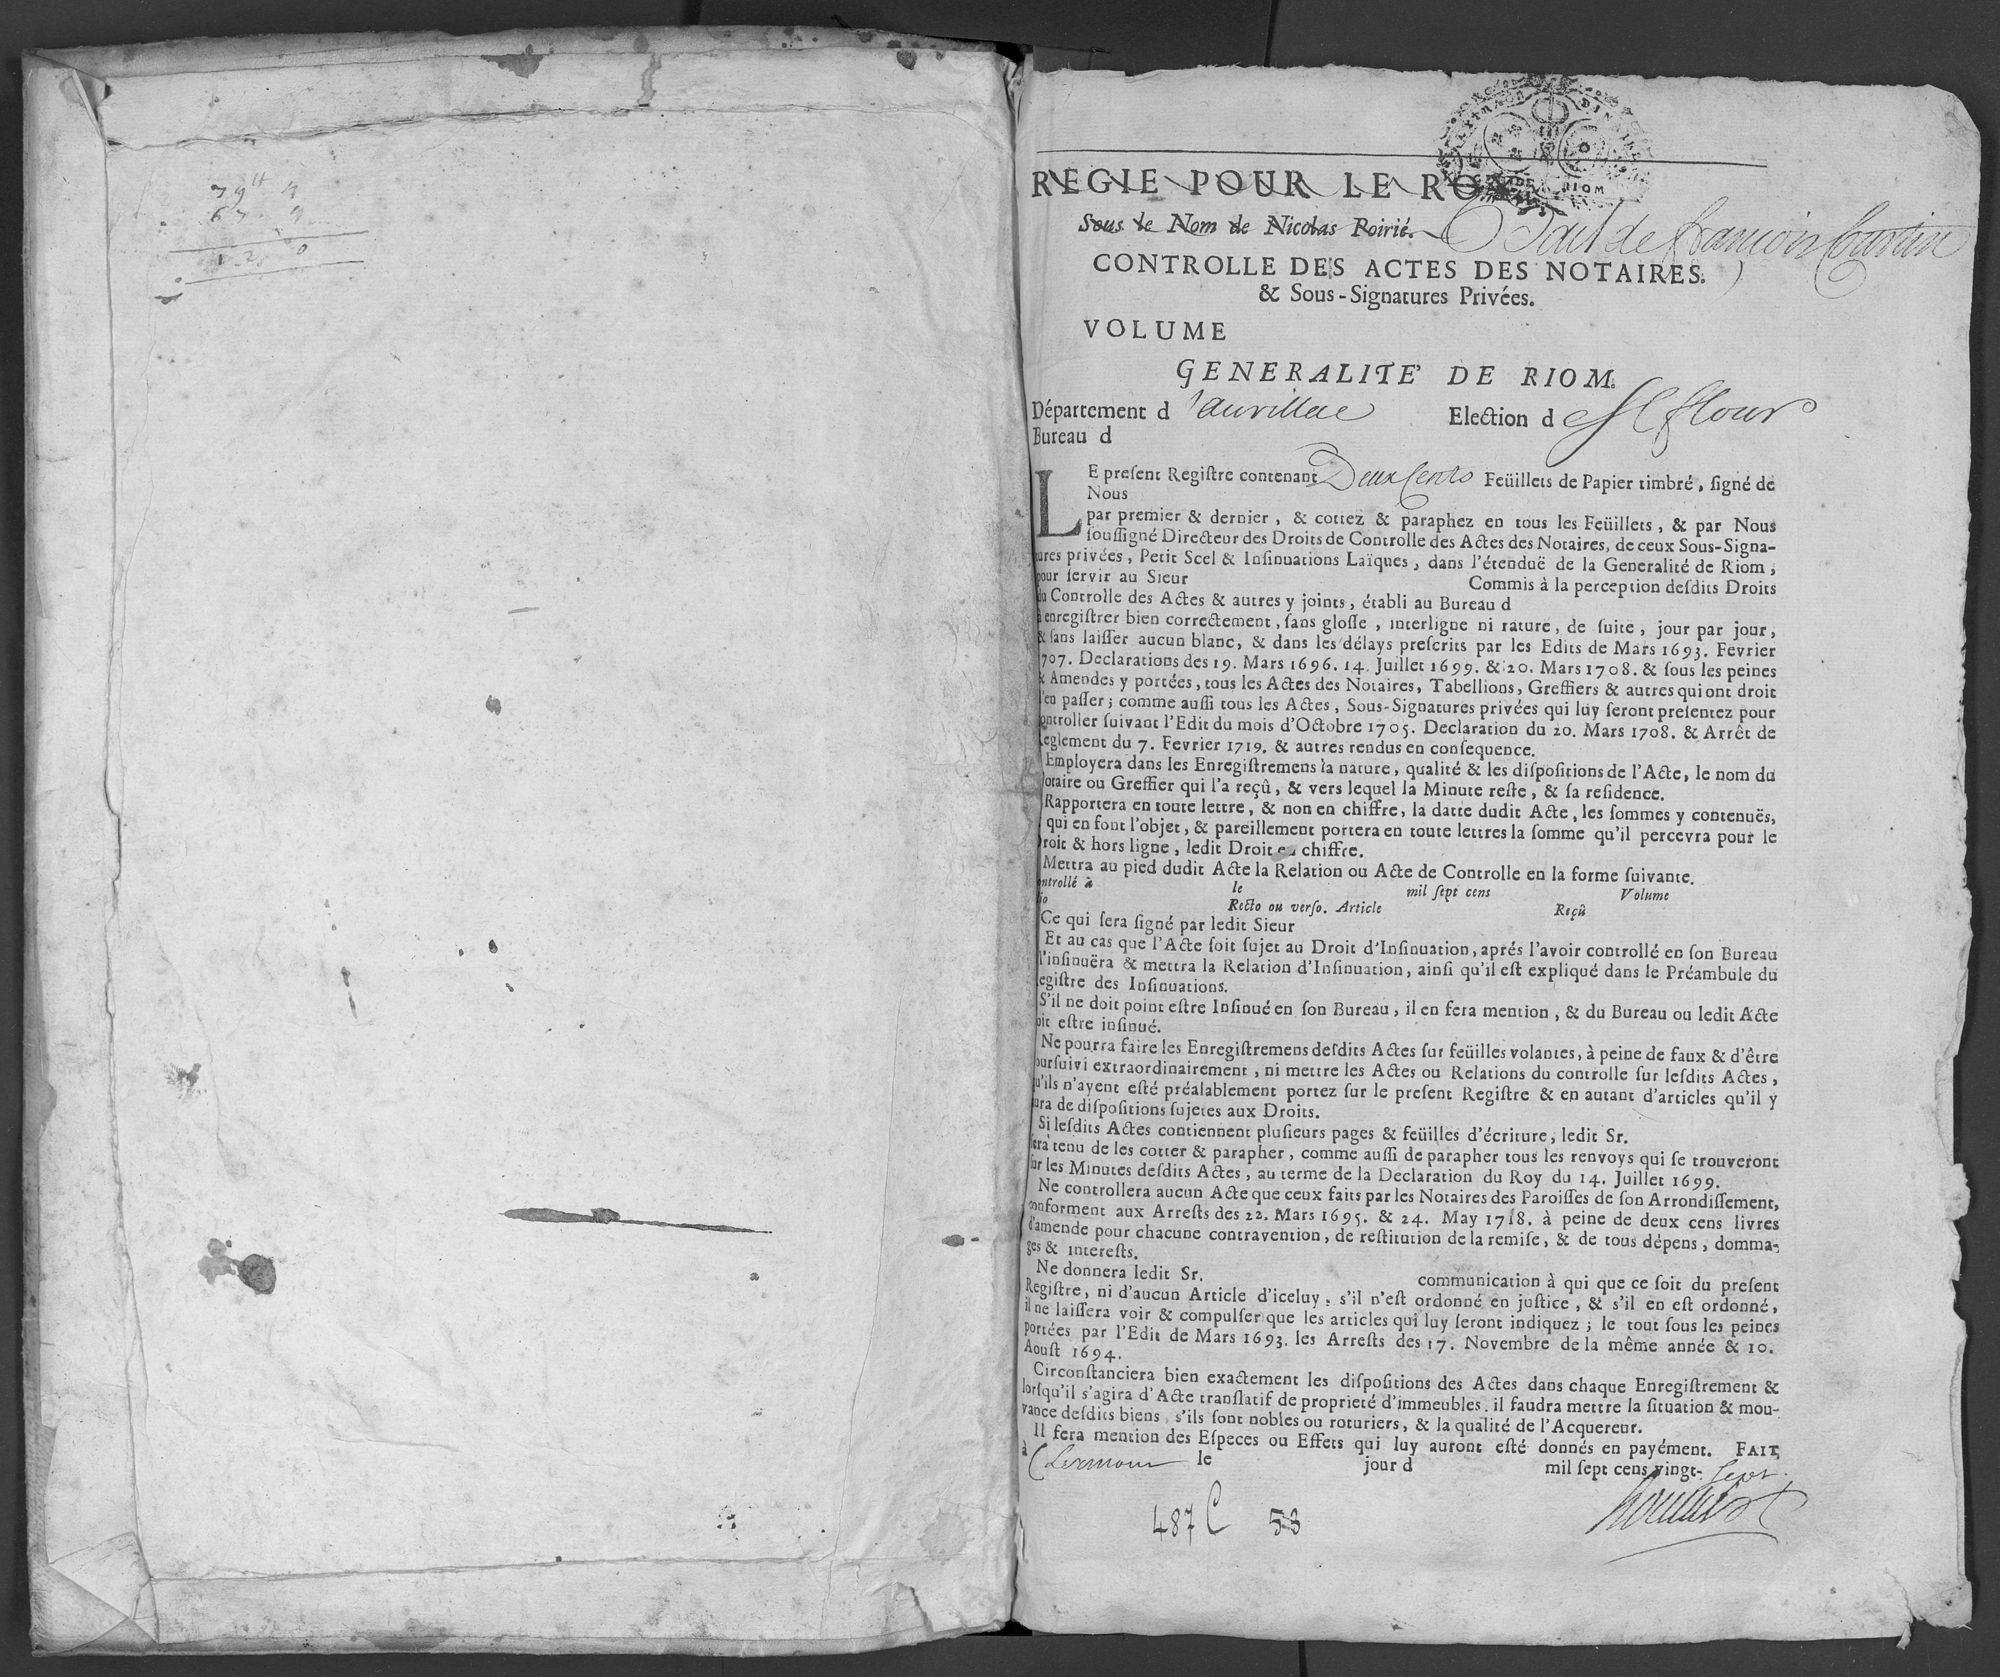 79tt 4
67 4
REGIE POUR LE ROY
Sous le Nom de Nicolas Poirié. Bail de françois
CONTROLLE DES ACTES DES NOTAIRES.
& Sous-Signatures Privées.
VOLUME
GENERALITE' DE RIOM.
Département d'aurillac Election de St flour
Bureau d
LE preſent Regiſtre contenant Deux Cents Feüillets de Papier timbré, ſigné de
Nous
par premier & dernier, & cottez & paraphez en tous les Feüillets, & par Nous
ſouſſigné Directeur des Droits de Controlle des Actes des Notaires, de ceux Sous-Signa-
tures privées, Petit Scel & Inſinuations Laïques, dans l'étenduë de la Generalité de Riom,
pour ſervir au Sieur Commis à la perception deſdits Droits
du Controlle des Actes & autres y joints, établi au Bureau d
à enregiſtrer bien correctement, ſans gloſſe, interligne ni rature, de ſuite, jour par jour,
& ſans laiſſer aucun blanc, & dans les délays preſcrits par les Edits de Mars 1693. Fevrier
1707. Declarations des 19. Mars 1696. 14. Juillet 1699. & 20. Mars 1708. & ſous les peines
& Amendes y portées, tous les Actes des Notaires, Tabellions, Greffiers & autres qui ont droit
d'en paſſer; comme auſſi tous les Actes, Sous-Signatures privées qui luy ſeront preſentez pour
controller ſuivant l'Edit du mois d'Octobre 1705. Declaration du 20. Mars 1708. & Arrêt de
Reglement du 7. Fevrier 1719. & autres rendus en conſequence.
Employera dans les Enregiſtremens la nature, qualité & les diſpoſitions de l'Acte, le nom du
Notaire ou Greffier qui l'a reçû, & vers lequel la Minute reſte, & ſa reſidence.
Rapportera en toute lettre, & non en chiffre, la datte dudit Acte, les ſommes y contenuës,
qui en font l'objet, & pareillement portera en toute lettres la ſomme qu'il percevra pour le
Droit & hors ligne, ledit Droit en chiffre.
Mettra au pied dudit Acte la Relation ou Acte de Controlle en la forme ſuivante.
Controllé à le mil ſept cens Volume
folio Recto ou verſo. Article Reçû
Ce qui ſera ſigné par ledit Sieur
Et au cas que l'Acte ſoit ſujet au Droit d'Inſinuation, aprés l'avoir controllé en ſon Bureau
l'inſinuëra & mettra la Relation d'Inſinuation, ainſi qu'il eſt expliqué dans le Préambule du
Regiſtre des Inſinuations.
S'il ne doit point eſtre Inſinué en ſon Bureau, il en fera mention, & du Bureau ou ledit Acte
doit eſtre inſinué.
Ne pourra faire les Enregiſtremens deſdits Actes ſur feüilles volantes, à peine de faux & d'être
pourſuivi extraordinairement, ni mettre les Actes ou Relations du controlle ſur leſdits Actes,
qu'ils n'ayent eſté préalablement portez ſur le preſent Regiſtre & en autant d'articles qu'il y
aura de diſpoſitions ſujetes aux Droits.
Si leſdits Actes contiennent pluſieurs pages & feüilles d'écriture, ledit Sr.
ſera tenu de les cotter & parapher, comme auſſi de parapher tous les renvoys qui ſe trouveront
ſur les Minutes deſdits Actes, au terme de la Declaration du Roy du 14. Juillet 1699.
Ne controllera aucun Acte que ceux faits par les Notaires des Paroiſſes de ſon Arrondiſſement,
conforment aux Arreſts des 22. Mars 1695. & 24. May 1718. à peine de deux cens livres
d'amende pour chacune contravention, de reſtitution de la remiſe, & de tous dépens, domma-
ges & intereſts.
Ne donnera ledit Sr. communication à qui que ce ſoit du preſent
Regiſtre, ni d'aucun Article d'iceluy, s'il n'eſt ordonné en juſtice, & s'il en eſt ordonné,
il ne laiſſera voir & compulſer que les articles qui luy ſeront indiquez; le tout ſous les peines
portées par l'Edit de Mars 1693. les Arreſts des 17. Novembre de la même année & 10.
Aouſt 1694.
Circonſtanciera bien exactement les diſpoſitions des Actes dans chaque Enregiſtrement &
lorſqu'il s'agira d'Acte tranſlatif de proprieté d'immeubles, il faudra mettre la ſituation & mou-
vance deſdits biens, s'ils ſont nobles ou roturiers, & la qualité de l'Acquereur.
Il fera mention des Eſpeces ou Effets qui luy auront eſté donnés en payément. FAIT
à Clermont le jour d mil ſept cens vingt-sept
487 C 53